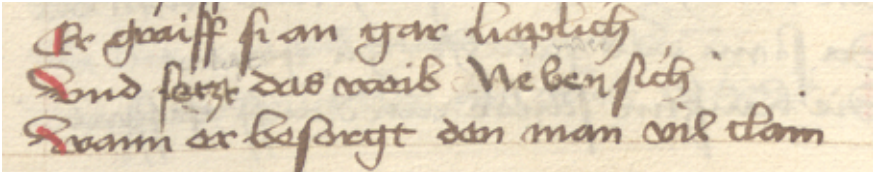 Er graiff si an gar lieplich
Vnd setzt das weib Neben sich
Wann er besorgt den man vil clain